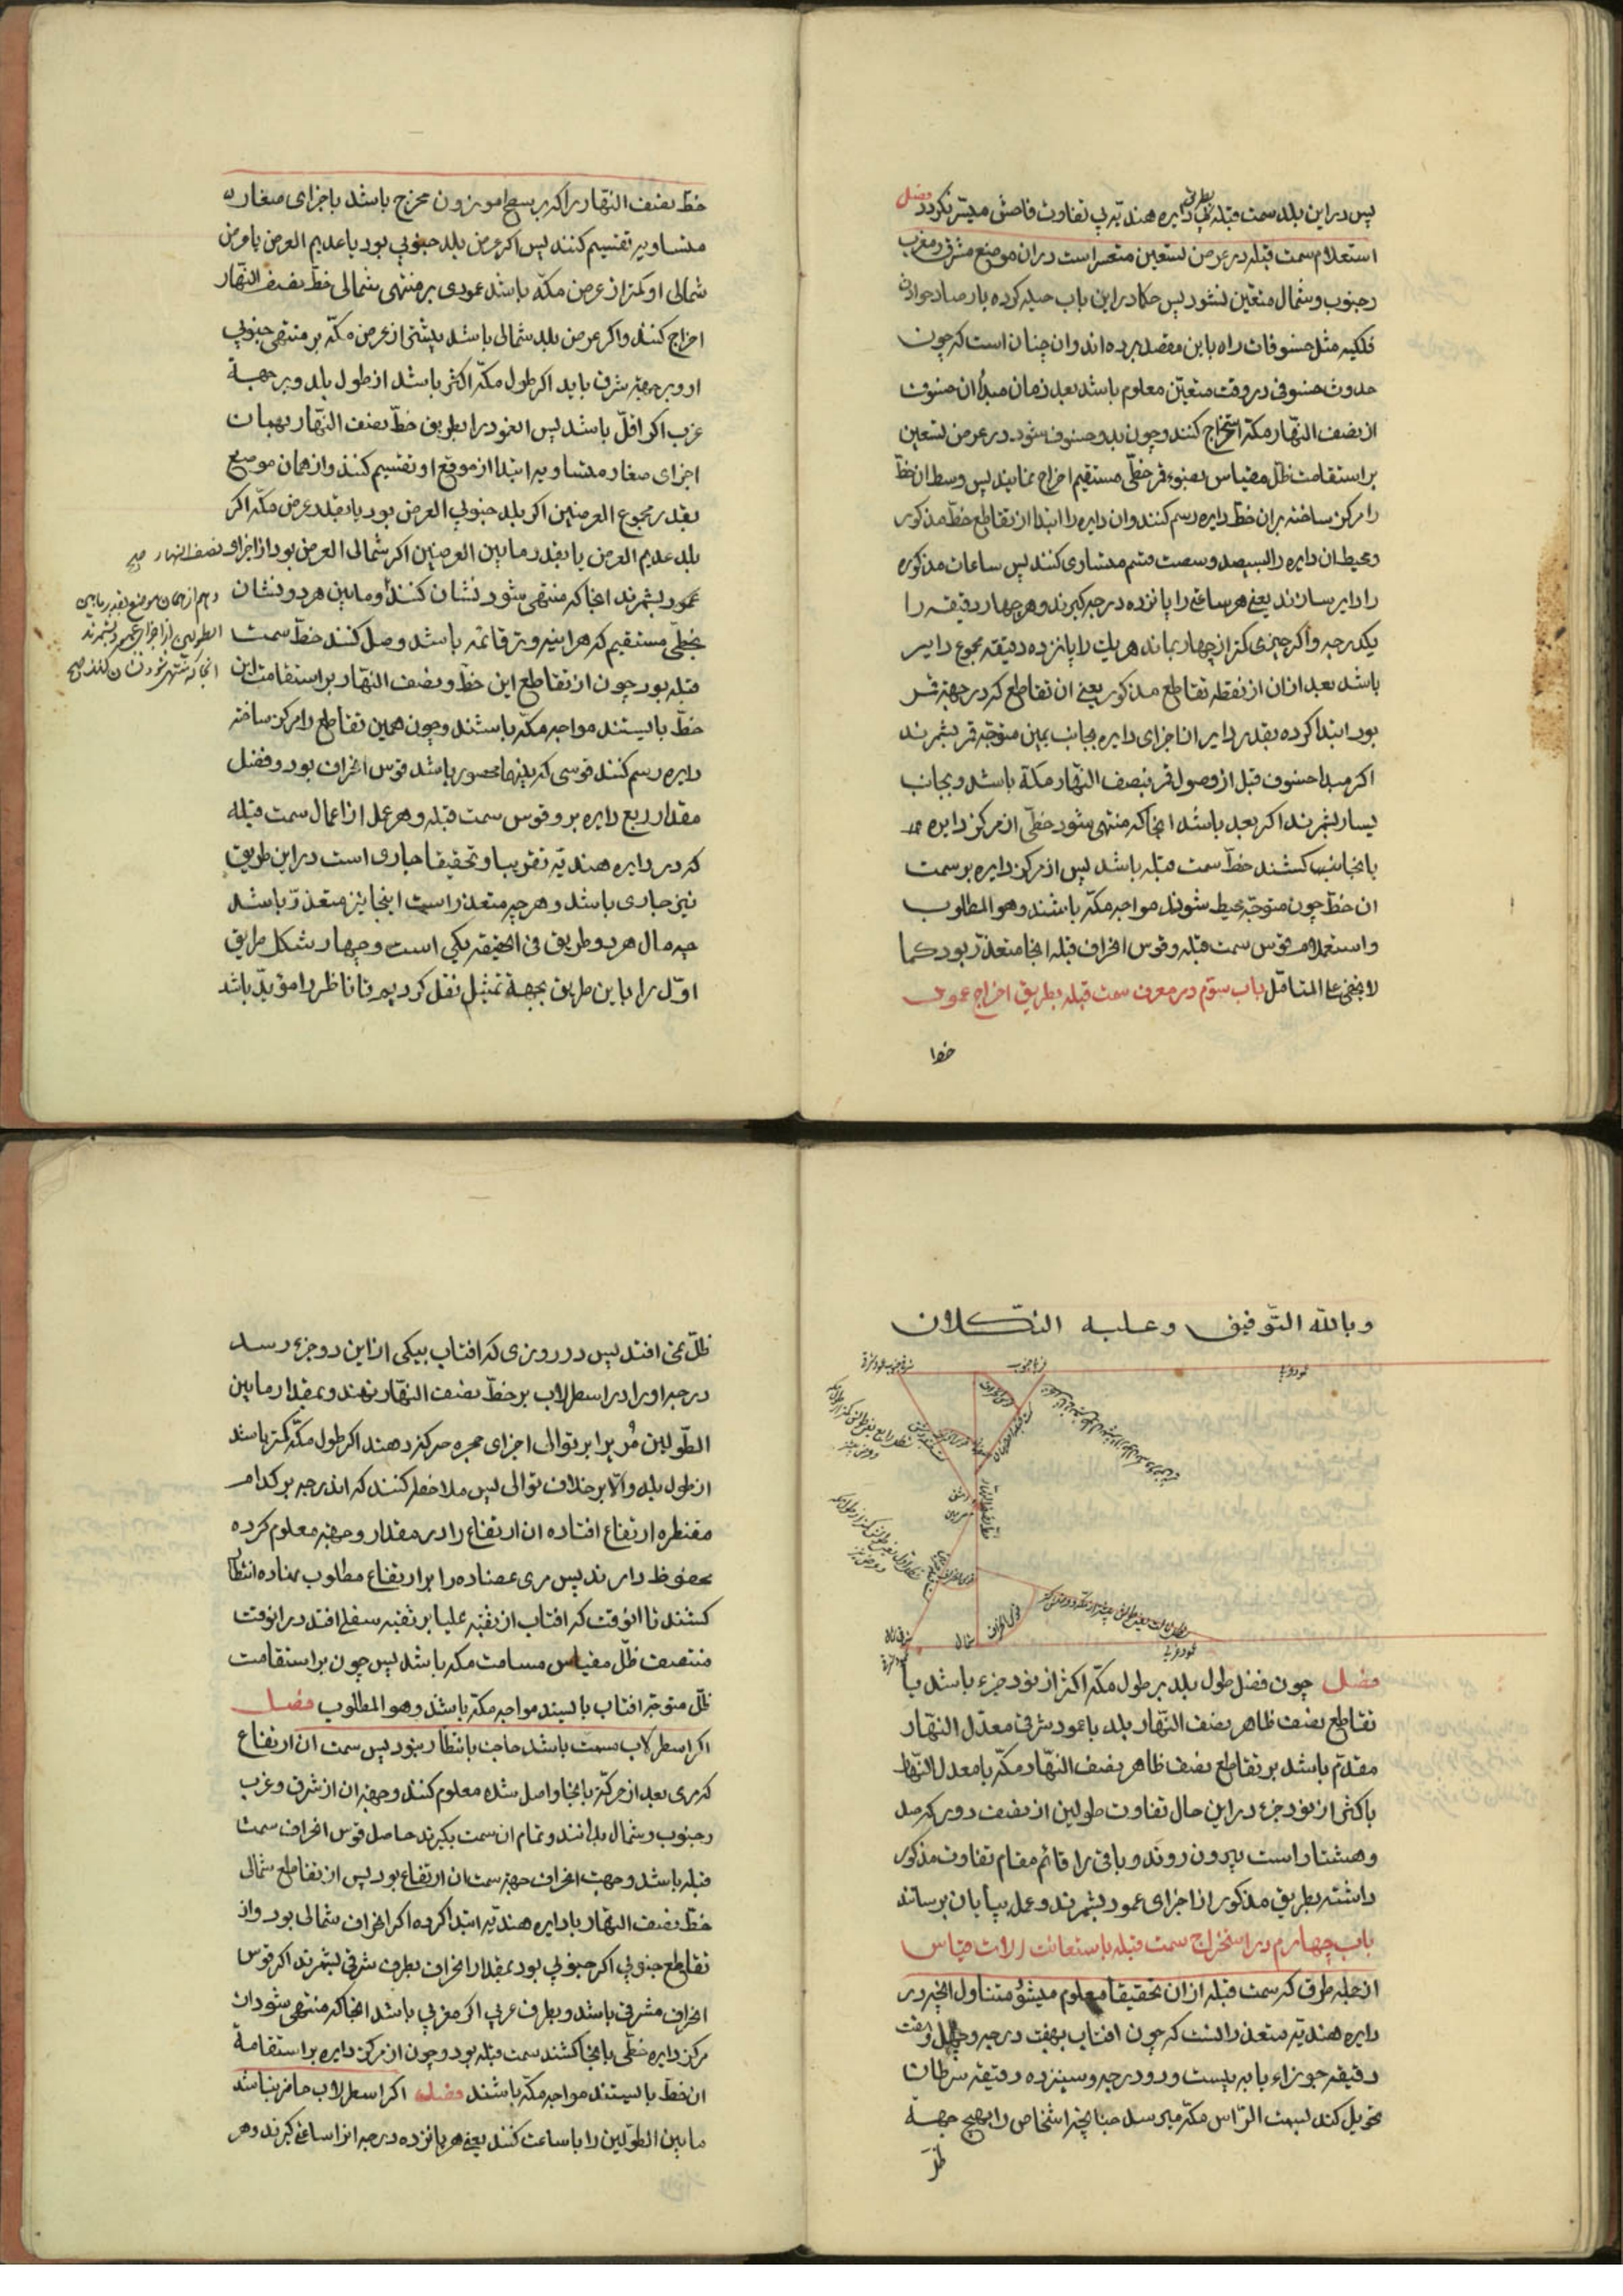 پس در این بلد سمت قبله بطریق دایره هندیه بی تفاوت فاحش میسر نکردد فصل
استعلام سمت قبله در عرض تسعین متعسر است در ان موضع مشرق و مغرب
و جنوب و شمال متعین نشود پس حکما در این باب حیله کرده بارصاد حوادث
فلکیه مثل خسوفات راه باین مقصد برده اند و ان چنان است که چون
حدوث خسوفی در وقت متعین معلوم باشد بعد زمان مبدأ ان خسوف
از نصف النهار مکه استخراج کنند و چون بدو خسوف شود در عرض تسعین
بر استقامت ظل مقیاس بضوء قمر خطی مستقیم اخراج نمایند پس وسط ان خط
را مرکز ساخته بر ان خط دایره رسم کنند و ان دایره را ابتدا از تقاطع خط مذکور
و محیط ان دایره را بسیصد و شصت قسم متساوی کنند پس ساعات مذکوره
را دایر سازند یعنی هر ساعتی را پانزده درجه گیرند و هر چهار دقیقه را
یکدرجه و اگر چیزی کمتر از چهار بماند هر یک را پانزده دقیقه مجموع دایر
باشد بعد از ان از نقطه تقاطع مذکور یعنی ان تقاطع که در جهة قمر
بود ابتدا کرده بقدر دایر از اجزای دایره بجانب یمین متوجه قمر بشمرند
اگر مبدا خسوف قبل از وصول قمر بنصف النهار مکه باشد و بجانب
یسار بشمرند اگر بعد باشد انجا که منتهی شود خطی از مرکز دایره
بانجانب کشند خط سمت قبله باشد پس از مرکز دایره بر سمت
ان خط چون متوجه محیط شوند مواجه مکه باشند و هو المطلوب
و استعلام قوس سمت قبله و قوس انحراف قبله انجا متعذر بود کما
لا یخفی علی المتامل باب سوم در معرفت سمت قبله بطریق اخراج عمود
خط نصف النهار را که بر سطح موزون مخرج باشد باجزای صغار
متساویه تقسیم کنند پس اگر عرض بلد جنوبی بود یا عدیم العرض یا عرض
شمالی او کمتر از عرض مکه باشد عمودی بر منتهی شمالی خط نصف النهار
اخراج کنند و اگر عرض بلد شمالی باشد بیشتر از عرض مکه بر منتهی جنوبی
او و بر جهة شرق باید اگر طول مکه اکثر باشد از طول بلد و بر جهة
غرب اگر اقل باشد پس انعمود را بطریق خط نصف النهار بهمان
اجزای صغار متساویه ابتدا از موقع او تقسیم کنند و از همان موضع
بقدر مجموع العرضین اگر بلد جنوبی العرض بود یا بقدر عرض مکه اگر
بلد عدیم العرض یا بقدر ما بین العرضین اگر شمالی العرض بود از اجزای نصف النهار صح
و هم از همان موضع بقدر ما بین
الطولین از اجزای عمود بشمرند
انجا که منتهی شود نشان کنند صح
عمود بشمرند انجا که منتهی شود نشان کنند و ما بین هر دو نشان
بخطی مستقیم که هراینه وتر قائمه باشد وصل کنند خط سمت
قبله بود چون از تقاطع این خط و نصف النهار بر استقامت این
خط بایستند مواجه مکه باشند و چون همین تقاطع را مرکز ساخته
دایره رسم کنند قوسی که بینهما محصور باشد قوس انحراف بود و فضل
مقدار ربع دایره بر او قوس سمت قبله و هر عمل از اعمال سمت قبله
که در دایره هندیه تقریبا و تحقیقا جاری است در این طریق
نیز جاری باشد و هر چه متعذر است اینجا نیز متعذر باشد
چه مآل هر دو طریق فی الحقیقه یکی است و چهار شکل طریق
اول را باین طریق بجهة تمثیل نقل کردیم تا ناظر را مؤید باشد
و بالله التوفیق و علیه التکلان
عمود غربی
خط نصف النهار
قوس انحراف
شمال
عمود غربی
فصل چون فضل طول بلد بر طول مکه اکثر از نود جزء باشد یا
تقاطع نصف ظاهر نصف النهار بلد یا عمود شرقی معدل النهار
مقدم باشد بر تقاطع نصف ظاهر نصف النهار مکه با معدل النهار
باکثر از نود جزء در این حال تفاوت طولین از نصف دور که صد
و هشتاد است بیرون روند و باقی را قائم مقام تفاوت مذکور
داشته بطریق مذکور از اجزای عمود بشمرند و عمل بپایان برسانند
باب چهارم در استخراج سمت قبله باستعانت الات قیاس
از جمله طرق که سمت قبله از ان تحقیقا معلوم میشود متناول انچه در
دایره هندیه متعذر دانست که چون افتاب بهفت درجه و چهل و هفت
دقیقه جوزاء یا به بیست و دو درجه و سیزده دقیقه سرطان
تحویل کند بسمت الراس مکه میرسد چنانچه اشخاص را بهیچ جهة
ظل
ظل نمی افتد پس در روزی که افتاب بیکی از این دو جزء رسد
درجه او را در اسطرلاب بر خط نصف النهار نهند و بمقدار ما بین
الطولین مری را بر توالی اجزای حجره حرکت دهند اگر طول مکه کمتر باشد
از طول بلد و الا بر خلاف توالی پس ملاحظه کنند که اندرجه بر کدام
مقنطره ارتفاع افتاده ان ارتفاع را در مقدار و جهة معلوم کرده
محفوظ دارند پس مری عضاده را بر ارتفاع مطلوب نهاده انتظار
کشند تا انوقت که افتاب از ثقبه علیا بر ثقبه سفلی افتد در انوقت
منتصف ظل مقیاس مسامت مکه باشد پس چون بر استقامت
ظل متوجه افتاب بایستند مواجه مکه باشند و هو المطلوب فصل
اگر اسطرلاب مسمت باشد حاجت بانتظار نبود پس سمت ان ارتفاع
که مری بعد از حرکة بانجا واصل شده معلوم کنند و جهة ان از شرق و غرب
و جنوب و شمال بدانند و تمام ان سمت بگیرند حاصل قوس انحراف سمت
قبله باشد و جهت انحراف جهة سمت ان ارتفاع بود پس از تقاطع شمالی
خط نصف النهار با دایره هندیه ابتدا کرده اگر انحراف شمالی بود و از
تقاطع جنوبی اگر جنوبی بود بمقدار انحراف بطرف شرقی بشمرند اگر قوس
انحراف مشرقی باشد و بطرف غربی اگر مغربی باشد انجا که منتهی شود از
مرکز دایره خطی بانجا کشند سمت قبله بود و چون از مرکز دایره بر استقامة
ان خط بایستند مواجه مکه باشند فصل اگر اسطرلاب حاضر نباشد
ما بین الطولین را با ساعت کنند یعنی هر پانزده درجه را ساعتی گیرند و هر